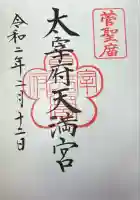 菅聖廟
太宰府天満宮
令和二年二月十二日